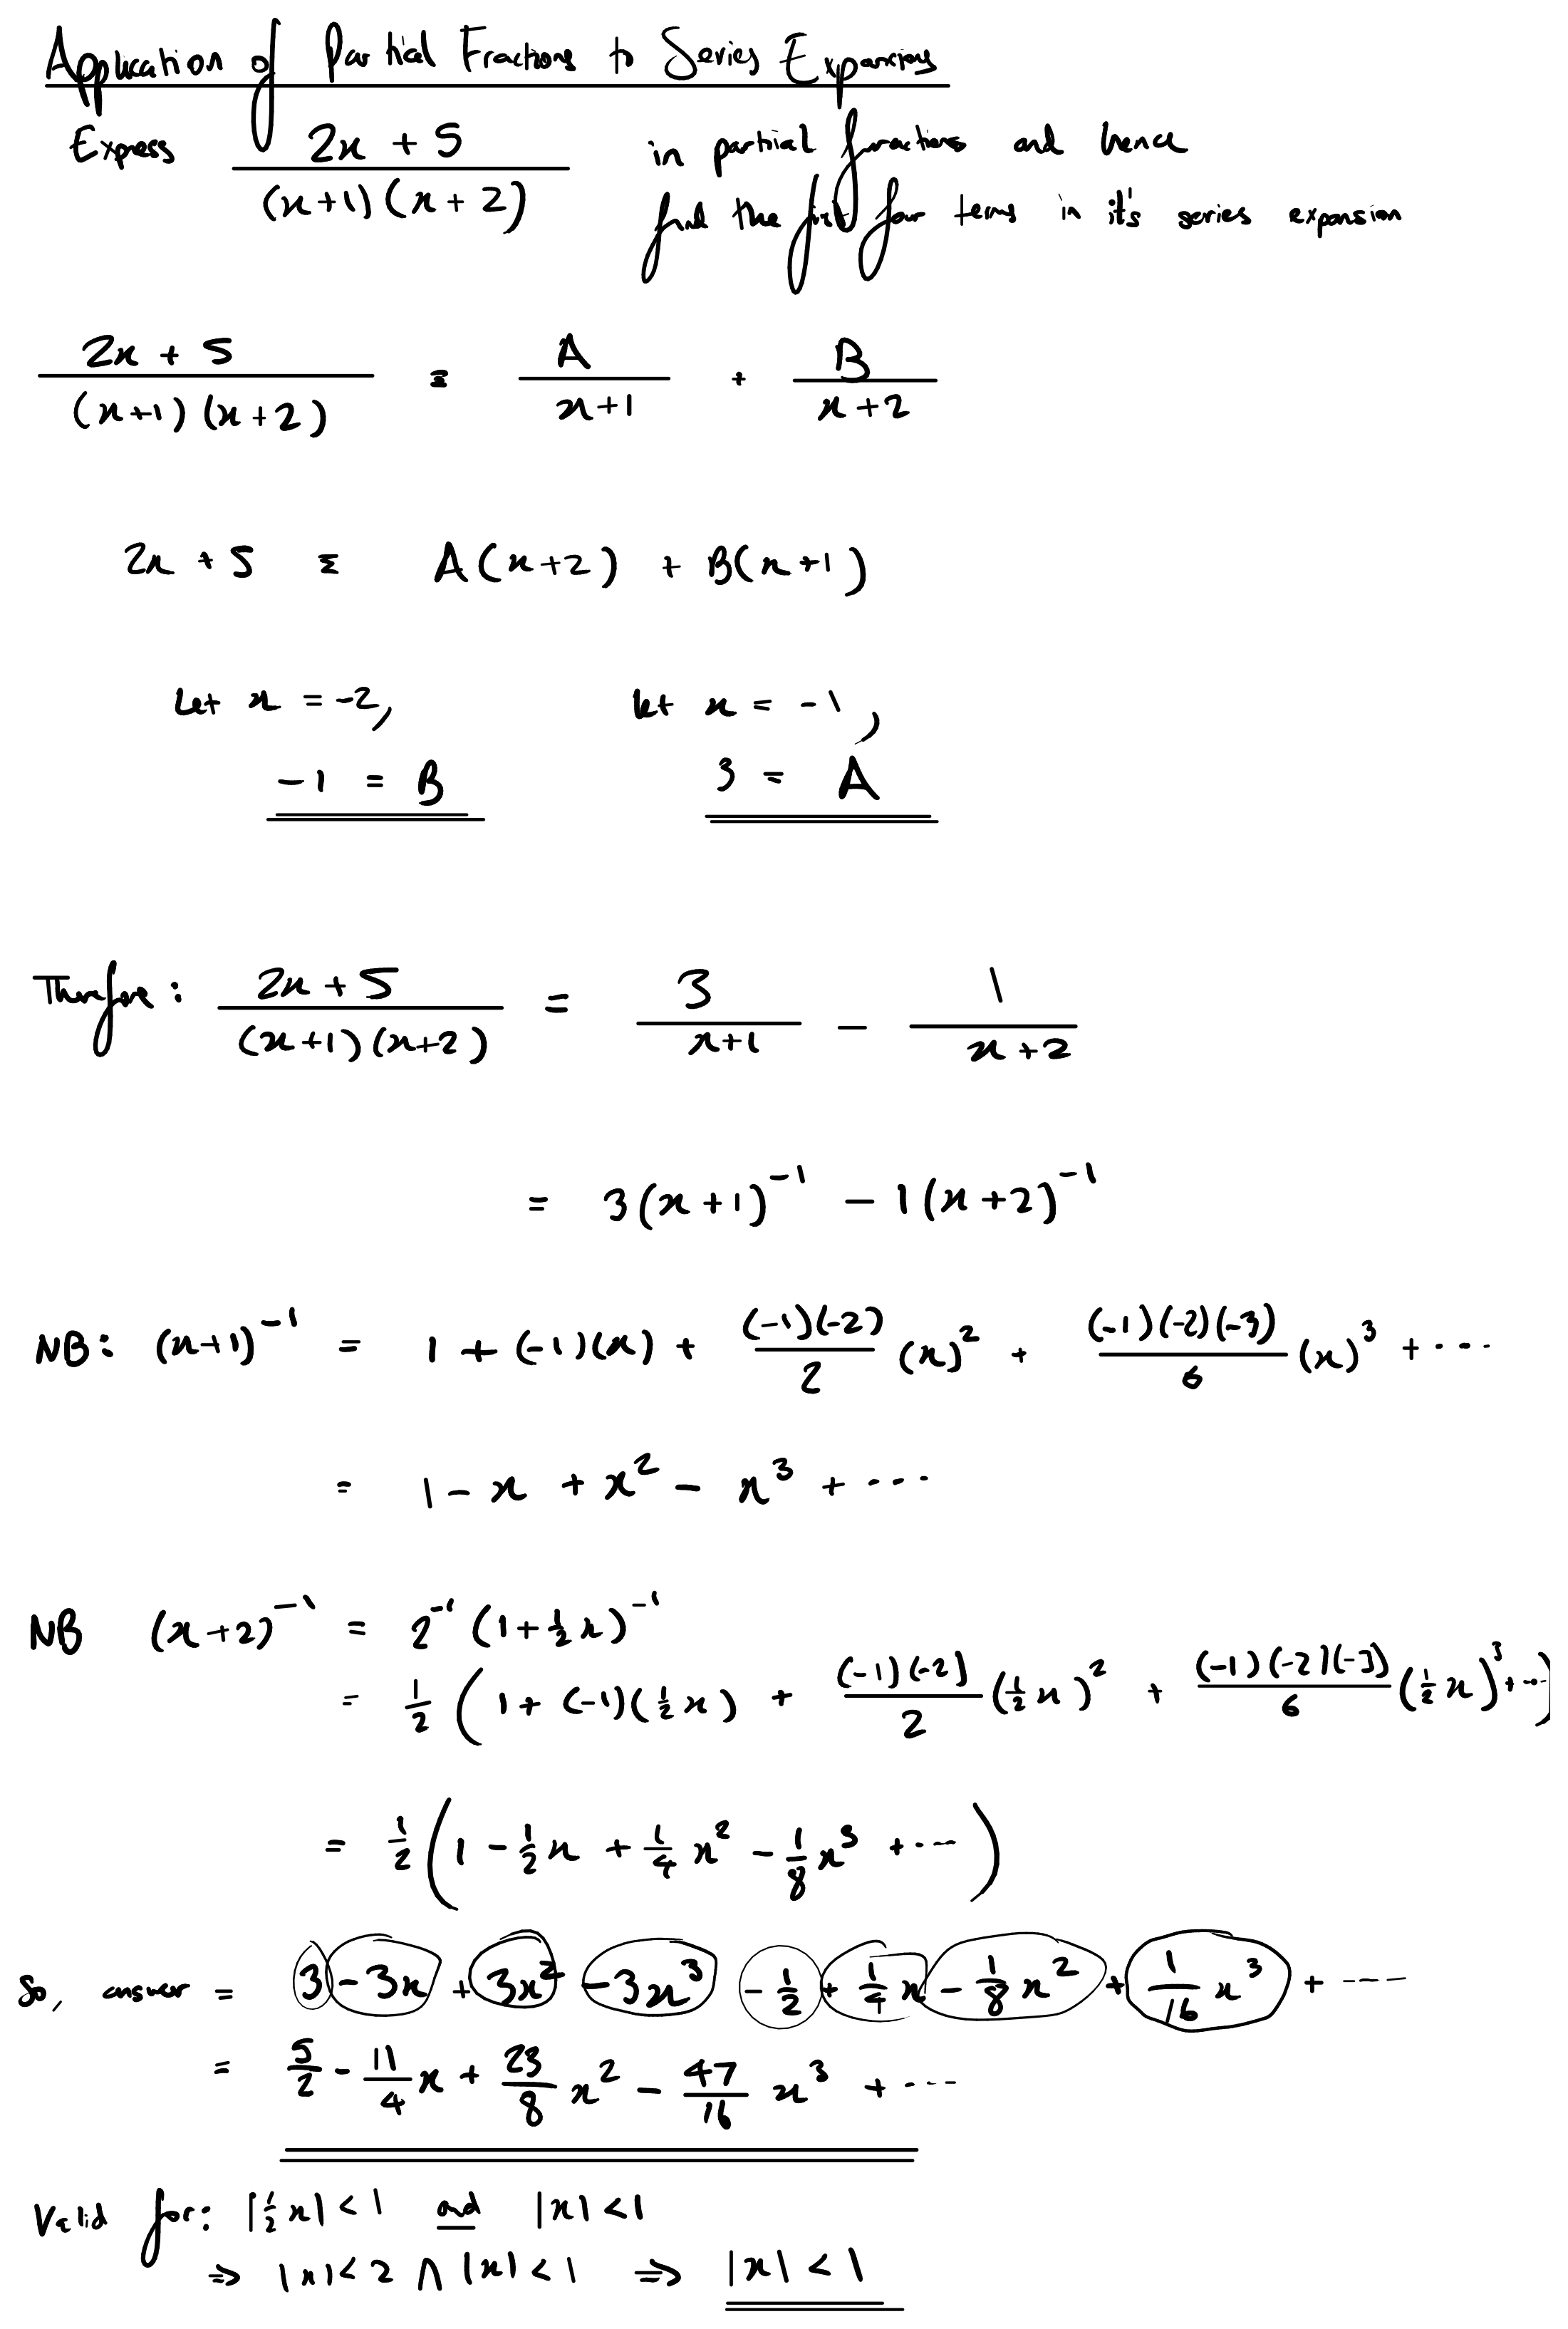 Application of Partial Fractions to Series Expansions
Express (2x + 5)/((x+1)(x+2)) in partial fractions and hence
find the first four terms in it's series expansion
(2x + 5)/((x+1)(x+2)) ≡ A/(x+1) + B/(x+2)
2x + 5 ≡ A(x+2) + B(x+1)
Let x = -2, let x = -1,
-1 = B 3 = A
Therefore: (2x + 5)/((x+1)(x+2)) = 3/(x+1) - 1/(x+2)
= 3(x+1)⁻¹ - 1(x+2)⁻¹
NB: (x+1)⁻¹ = 1 + (-1)(x) + (-1)(-2)/2 (x)² + (-1)(-2)(-3)/6 (x)³ + ...
= 1 - x + x² - x³ + ...
NB (x+2)⁻¹ = 2⁻¹ (1 + ½x)⁻¹
= ½ (1 + (-1)(½x) + (-1)(-2)/2 (½x)² + (-1)(-2)(-3)/6 (½x)³ + ...)
= ½ (1 - ½x + ¼x² - ⅛x³ + ...)
So, answer = 3 - 3x + 3x² - 3x³ - ½ + ¼x - ⅛x² + 1/16 x³ + ...
= 5/2 - 11/4 x + 23/8 x² - 47/16 x³ + ...
Valid for: |½x| < 1 and |x| < 1
⇒ |x| < 2 ∩ |x| < 1 ⇒ |x| < 1